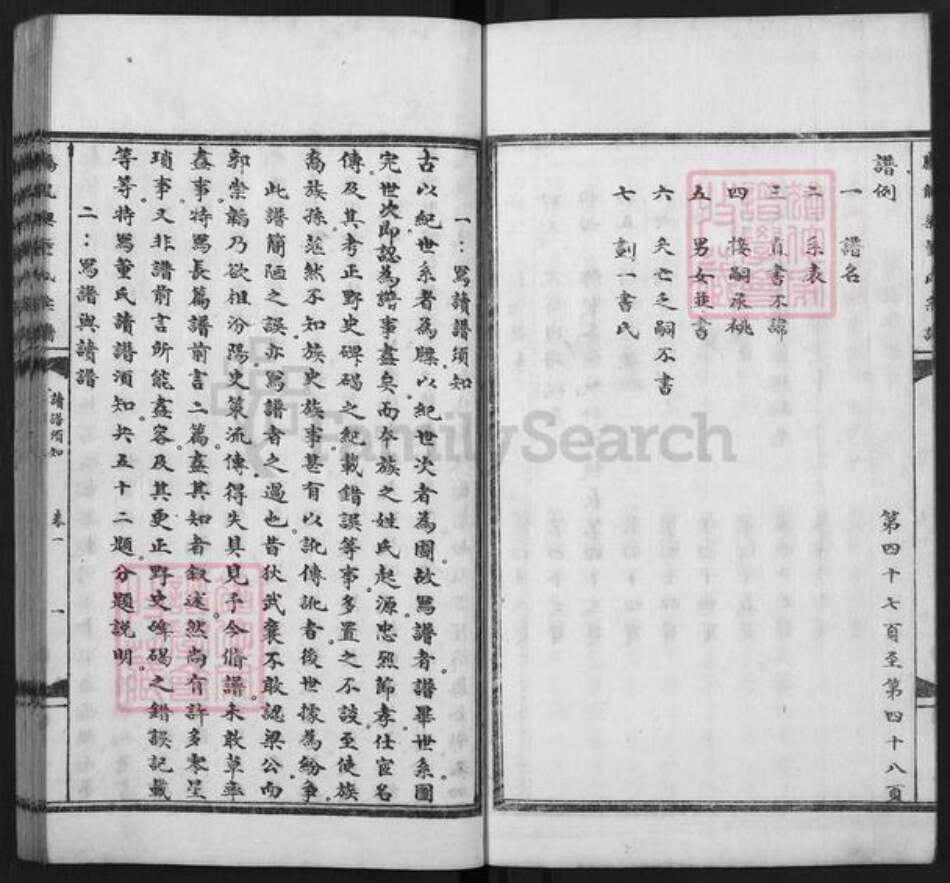 譜例　第四十七頁至第四十八頁
一　譜名
二　系表
三　直書不諱
四　接嗣承祧
五　男女並書
六　夭亡乏嗣不書
七　劃一書氏
一：寫讀譜須知
古以紀世系者為牒。以紀世次者為圖。故寫譜者。譜畢世系圖
完世次。即認為譜事盡矣。而本族之姓氏起源。忠烈節孝。仕宦名
傳。及其考正野史碑碣之紀載錯誤等事。多置之不談。至使族
裔族孫。茫然不知族史族事。甚有以訛傳訛者。後世據為紛爭。
此譜簡陋之誤。亦寫譜者之過也。昔狄武襄不敢認梁公。而
郭崇韜乃欲祖汾陽。史策流傳。得失具見。予今脩譜。未敢草率
盡事。特寫長篇譜前言二篇。盡其知者敘述。然尚有許多零星
瑣事。又非譜前言所能盡容。及其更正野史碑碣之錯誤記載
等等。特寫董氏讀譜須知。共五十二題。分題說明。
二：寫譜與讀譜
讀譜須知　卷一　一
FamilySearch